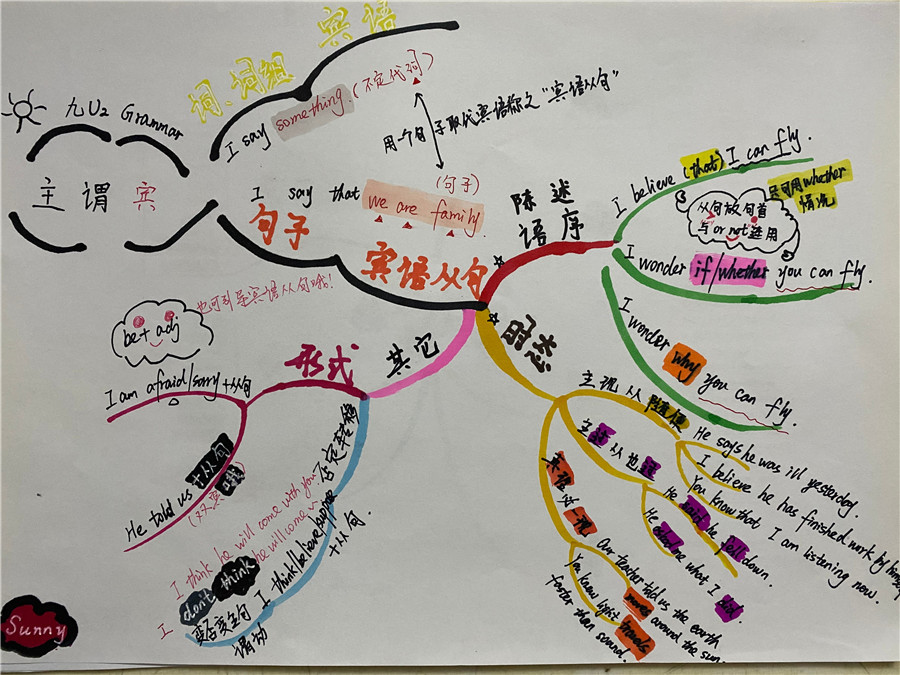 词、词组 宾语
九 U2 Grammar
主 谓 宾
I say something. (不定代词)
用一个句子取代宾语称之"宾语从句"
I say that we are family.
(句子)
句子
宾语从句
陈述语序
I believe (that) I can fly.
只可用whether
情况
从句放句首
与or not连用
I wonder if/whether you can fly.
I wonder why you can fly.
时态
主现从随便
He says he was ill yesterday.
I believe he has finished work by himself.
You know that I am listening now.
主过从也过
He said he fell down.
He asked me what I did.
真理为一现
Our teacher told us the earth
moves around the sun.
You know light travels
faster than sound.
其它
形式
也可引导宾语从句哦!
be + adj
I am afraid/sorry + 从句
He told us + 从句
(双宾)
否定转移
I think/believe/suppose
+ 从句.
I think he will come with you
I don't think he will come
变否变主句
谓动
Sunny